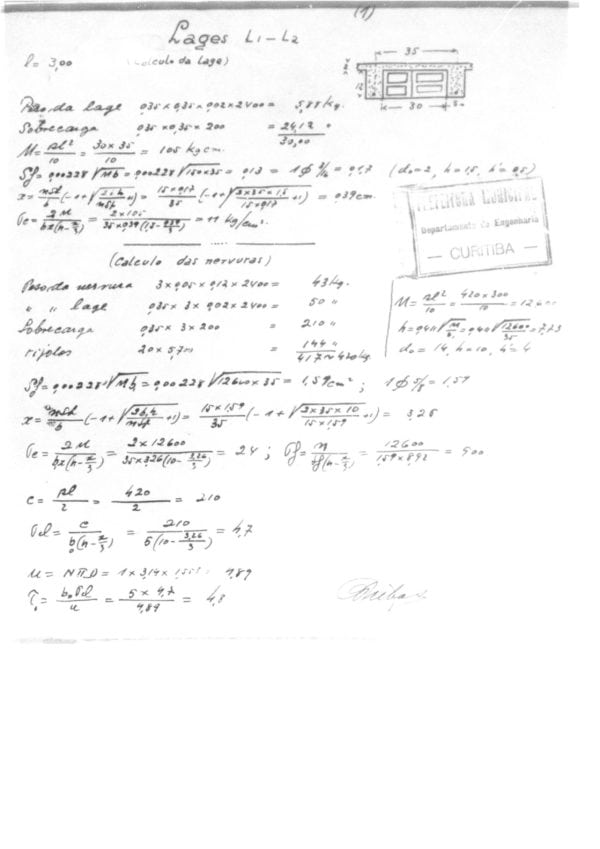 (1)
Lages L1-L2
l= 3,00 (Calculo da Lage)
35
12
30 5
Peso da lage 0,35 x 0,35 x 0,02 x 2400 = 5,88 kg.
Sobrecarga 0,35 x 0,35 x 200 = 24,12 "
30,00
M = pl²/10 = 30 x 35/10 = 105 kg cm.
x = (-1+√ +1) = 15 x 0,17/35 (-1+√2x35x1,5/15x0,17 +1) = 0,39 cm.
σe = 2M/bx(h-x/3) = 2 x 105/ = 11 kg/cm².
PREFEITURA MUNICIPAL
Departamento de Engenharia
— CURITIBA —
(Calculo das nervuras)
Peso da nervura 3 x 0,05 x 0,12 x 2400 = 43 kg.
" " lage 0,35 x 3 x 0,02 x 2400 = 50 "
Sobrecarga 0,35 x 3 x 200 = 210 "
tijolos 20 x 5,7 m = 144 "
417 ≈ 420 kg.
M = pl²/10 = 420 x 300/10 = 12600
h = 0,40 √M/b = 0,40 √12600/35 = 7,73
d0 = 14, h = 10, h' = 4
Sf = 0,00228 √Mb = 0,00228 √12600 x 35 = 1,59 cm² ; 1 ϕ 5/8 = 1,59
x = (-1+√ +1) = 15 x 1,59/35 (-1+√2x35x10/15x1,59 +1) = 3,26
σe = 2M/bx(h-x/3) = 2 x 12600/35x3,26(10-3,26/3) = 24 ; σf = M/Sf(h-x/3) = 12600/1,59 x 8,92 = 900
c = pl/2 = 420/2 = 210
σd = c/b0(h-x/3) = 210/5(10-3,26/3) = 4,7
u = NπD = 1 x 3,14 x = 4,89
τo = b0 σd/u = 5 x 4,7/4,89 = 4,8